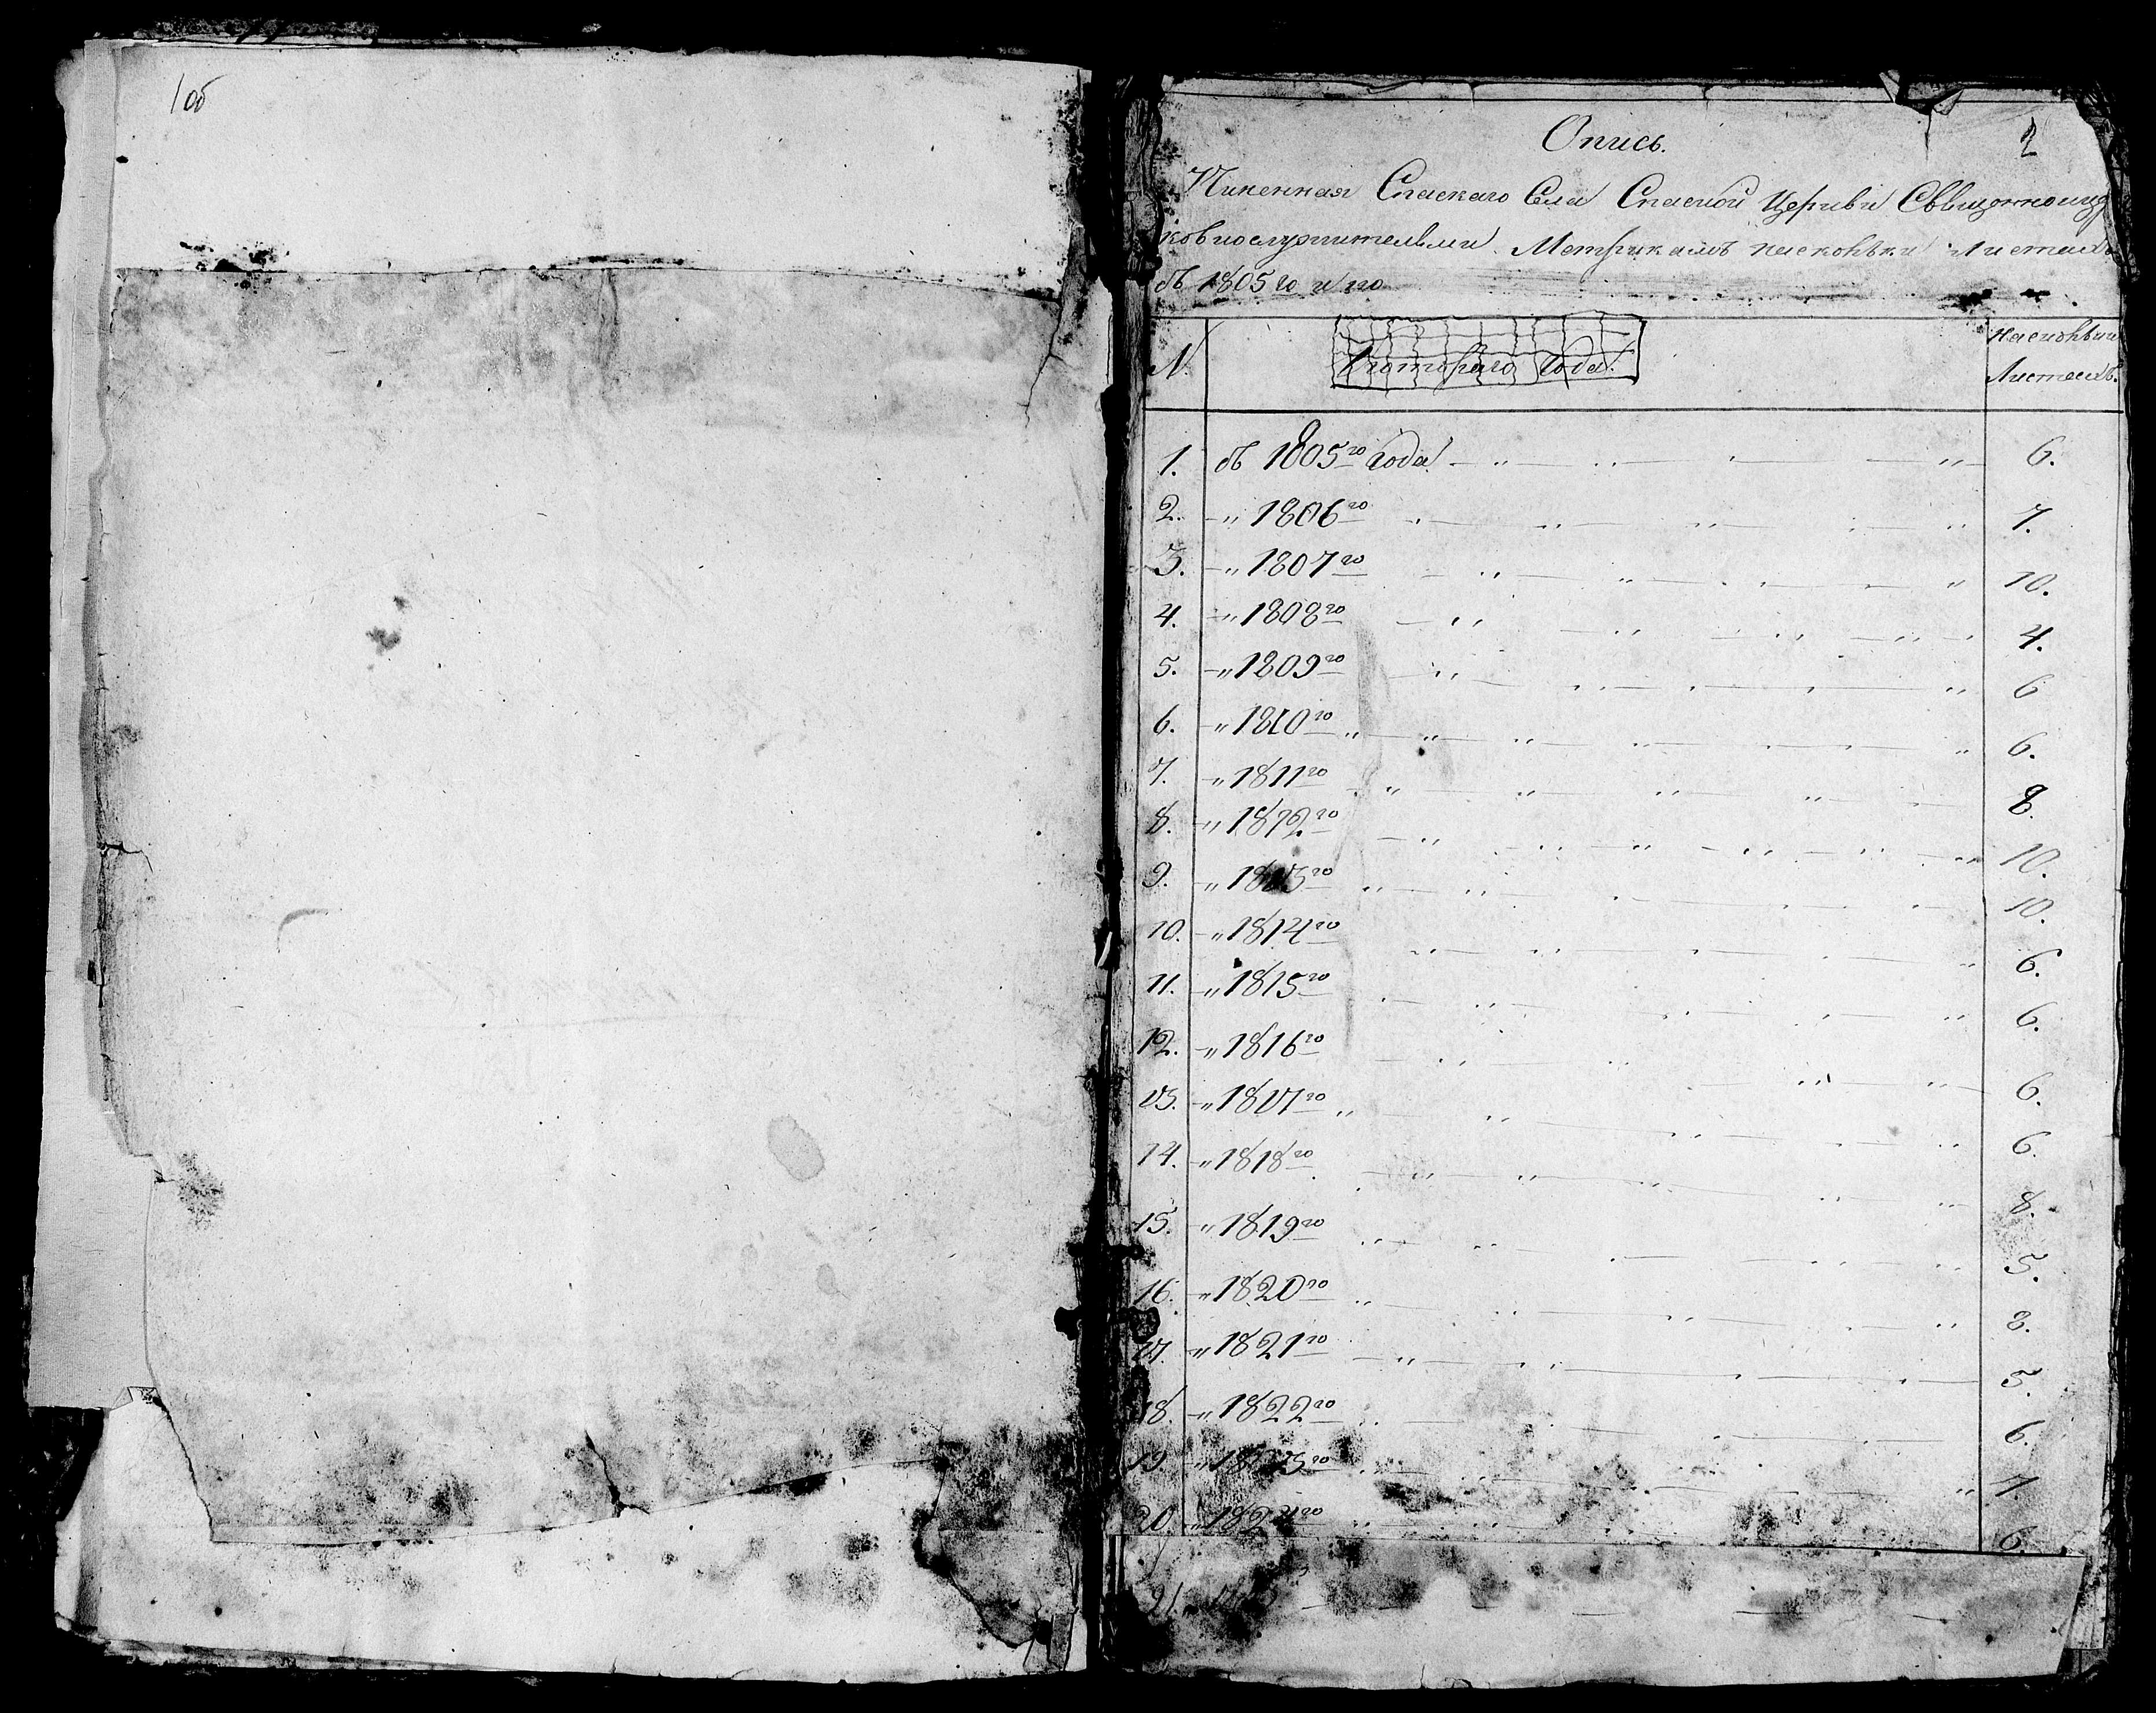 1об
2
Опись.
Спаскаго Села Спаской Церкви
Метрикамъ насколькихъ Листахъ
съ 1805го и по
N. Котораго Года. Насколькихъ Листахъ.
1. съ 1805го Года. 6.
2. -„ 1806го 7.
3. -„ 1807го 10.
4. -„ 1808го 4.
5. -„ 1809го 6
6. -„ 1810го 6.
7. -„ 1811го 8.
8. -„ 1812го 10.
9. „ 1813го 10.
10. -„ 1814го 6.
11. -„ 1815го 6.
12. -„ 1816го 6.
13. -„ 1817го 6.
14. -„ 1818го 8.
15. -„ 1819го 5.
16. -„ 1820го 8.
17. -„ 1821го 5.
18. -„ 1822го 6.
19 -„ 1823го 7.
20. „ 1824го 6.
21.